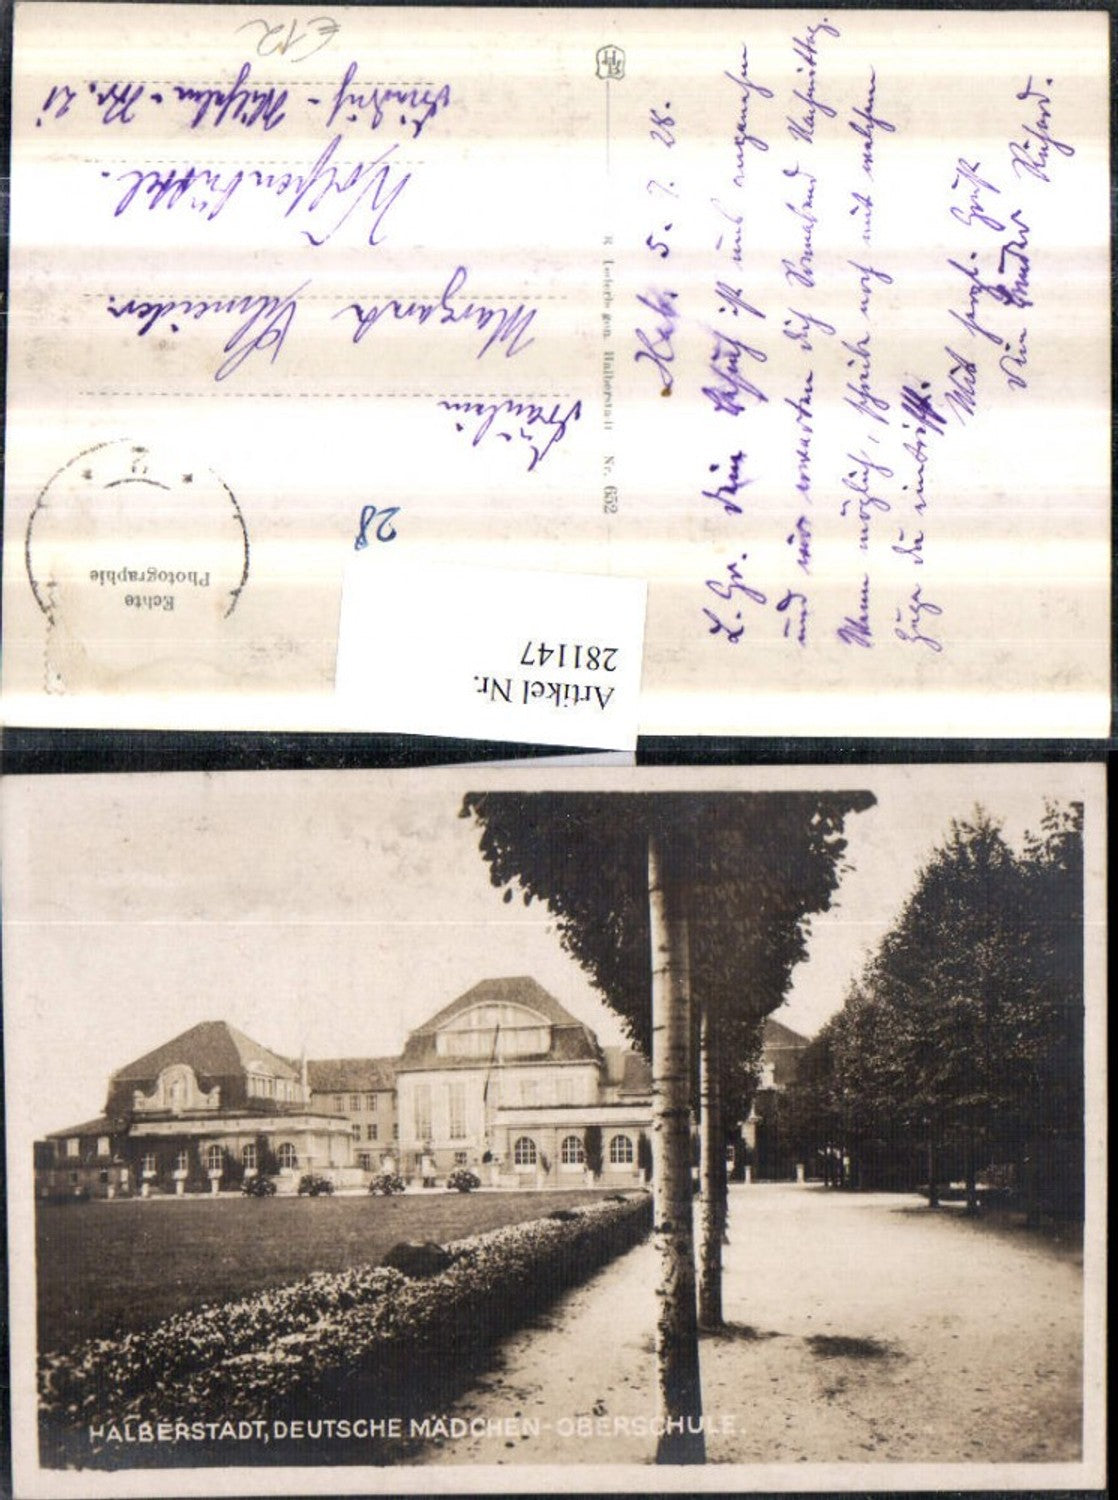 €12
Hbt. 5. 7. 28.
L. Gr. Dein Besuch ist uns angenehm
und wir erwarten dich Sonnabend Nachmittag.
Wenn möglich, schreibe noch mit welchem
Zuge du eintriffst.
Mit herzl. Gruß
Dein Bruder Richard.
R. Lederbogen, Halberstadt Nr. 652
Echte
Photographie
28
Fräulein
Margarete Schneider.
Wolfenbüttel.
Friedrich-Wilhelm-Str. 21
Artikel Nr.
281147
HALBERSTADT, DEUTSCHE MÄDCHEN-OBERSCHULE.